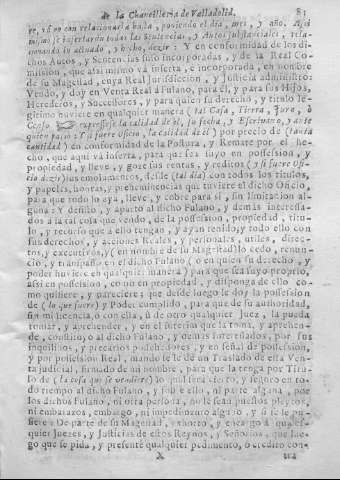 de la Chancilleria de Valladolid. 81
re, y si no con relacionarla basta, poniendo el dia, mes, y año. Assi
mismo se insertarán todas las Sentencias, y Autos substanciales, rela-
cionando lo actuado, y hecho, dezir: Y en conformidad de los di-
chos Autos, y Sentencias suso incorporadas, y de la Real Co-
mission, que assimismo vá inserta, e incorporada, en nombre
de su Magestad, cuya Real Jurisdiccion, y Justicia administro:
Vendo, y doy en Venta Real à Fulano, para èl, y para sus Hijos,
Herederos, y Successores, y para quien su derecho, y titulo le-
gitimo huviere en qualquier manera (tal Casa, Tierra, Juro, ò
Censo expressesse la calidad de èl, su fecha, y Escrivano, y ante
quien passò: Y si fuere Oficio, la calidad de èl) por precio de (tanta
cantidad) en conformidad de la Postura, y Remate por el he-
cho, que aqui vá inserta, para que sea suyo en possession, y
propiedad, y lleve, y goze sus rentas, y reditos (y si fuere Ofi-
cio dezir) sus emolumentos, desde (tal dia) con todos los titulos,
y papeles, honras, y preheminencias que tuviere el dicho Oficio,
para que todo lo aya, lleve, y cobre para sí, sin limitacion al-
guna: Y desisto, y aparto al dicho Fulano, y demás interessa-
dos à la tal cosa que vendo, de la possession, propiedad, titu-
lo, y recurso que à ello tengan, y ayan tenido, y todo ello con
sus derechos, y acciones Reales, y personales, utiles, direc-
tos, y executivos, y (en nombre de su Magestad) lo cedo, renun-
cio, y transpasso en el dicho Fulano (ò en quien su derecho, y
poder huviere en qualquier manera) para que sea suyo proprio,
assi en possession, como en propiedad, y disponga de ello co-
mo quisiere, y pareciere; que desde luego le doy la possession
de (lo que fuere) y Poder cumplido, para que de su authoridad,
sin mi licencia, ò con ella, ù de otro qualquier Juez, la pueda
tomar, y aprehender, y en el interin que la toma, y aprehen-
de, constituyo al dicho Fulano, y demás interessados, por sus
inquilinos, y precarios posseedores, y en señal de possession,
y por possession Real, mando se le dè un Traslado de esta Ven-
ta judicial, firmado de mi nombre, para que la tenga por Titu-
lo de (la cosa que se vendiere) lo qual será cierto, y seguro en to-
do tiempo al dicho Fulano, y que à ello, ni parte alguna, por
los dichos Fulano, ni otra persona, no le será puestos pleytos,
ni embarazos, embargo, ni impedimento alguno, y si se le pu-
siere: De parte de su Magestad, exhorto, y encargo à quales-
quier Juezes, y Justicias de estos Reynos, y Señorios, que lue-
go que se pida, y presente qualquier pedimento, ò credito con-
X tra